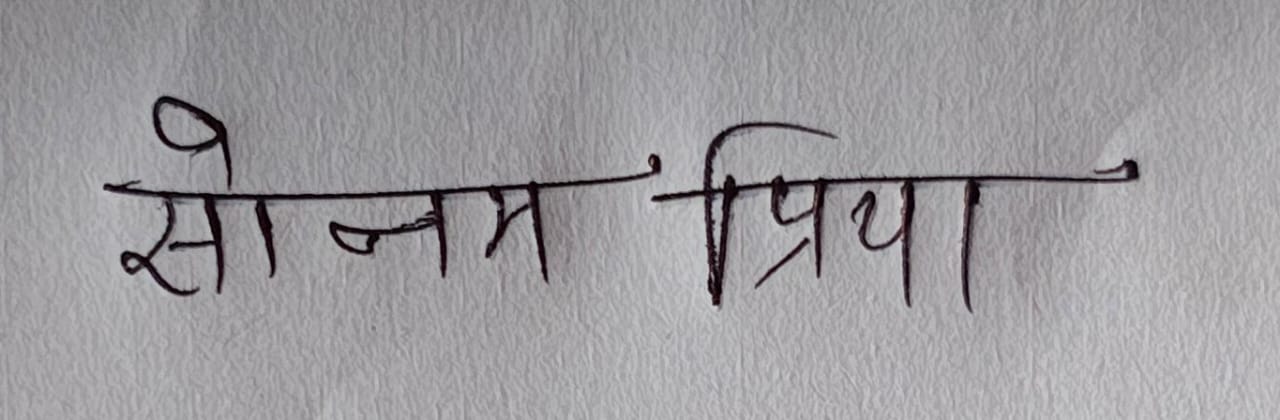 सोनम प्रिया